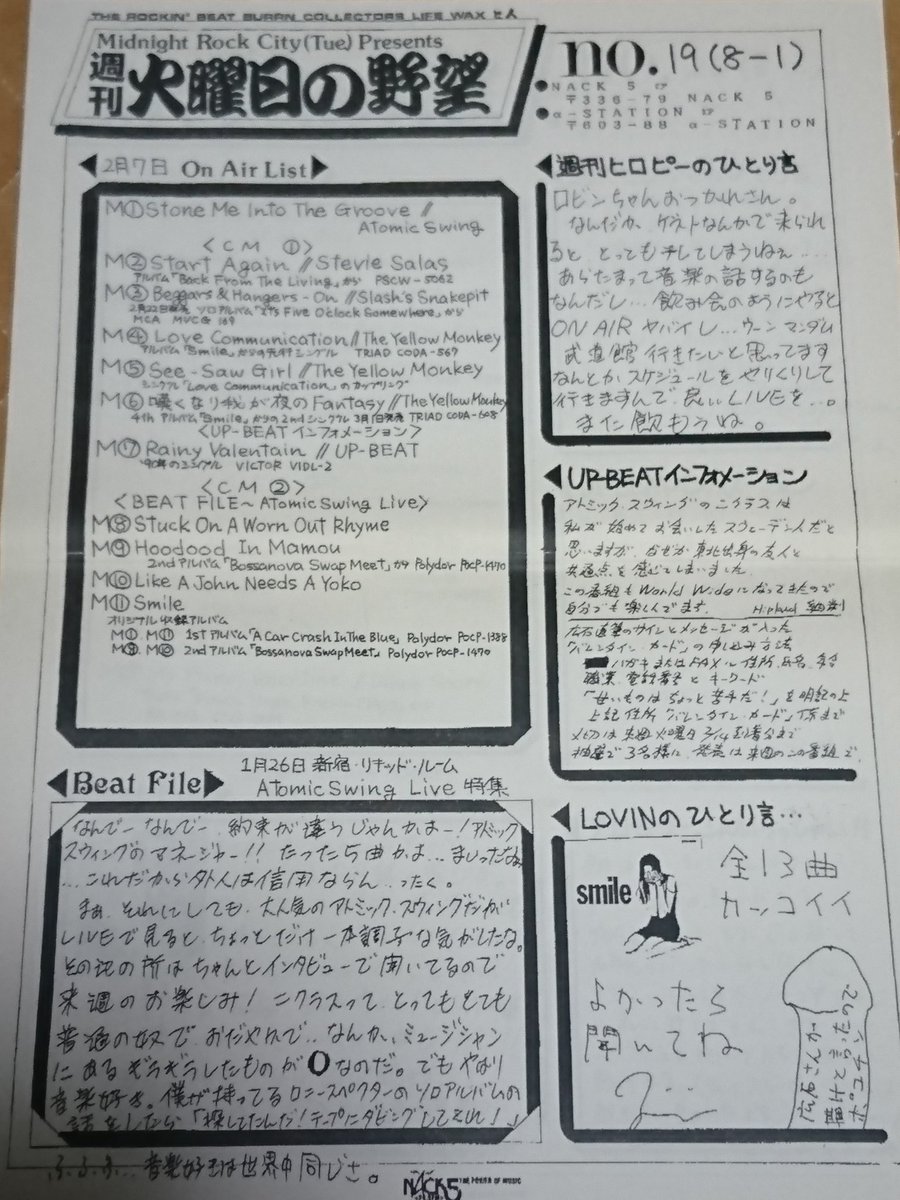 THE ROCKIN' BEAT BURRN COLLECTORS LIFE WAX と人
Midnight Rock City(Tue) Presents
週刊 火曜日の野望
no.19(8-1)
●NACK 5 は
〒336-79 NACK 5
●α-STATION は
〒603-88 α-STATION
◀2月7日 On Air List▶
M① Stone Me Into The Groove //
Atomic Swing
<CM ①>
M② Start Again // Stevie Salas
アルバム「Back From The Living」から PSCW-5062
M③ Beggars & Hangers-On // Slash's Snakepit
2月22日発売 ソロアルバム「It's Five O'clock Somewhere」から
MCA MVCG 169
M④ Love Communication // The Yellow Monkey
アルバム「Smile」からの先行シングル TRIAD CODA-567
M⑤ See-Saw Girl // The Yellow Monkey
シングル「Love Communication」のカップリング
M⑥ 嘆くなり我が夜のFantasy // The Yellow Monkey
4th アルバム「Smile」からの2nd シングル 3月1日発売 TRIAD CODA-608
<UP-BEATインフォメーション>
M⑦ Rainy Valentain // UP-BEAT
'90年のシングル VICTOR VIDL-2
<CM ②>
<BEAT FILE~Atomic Swing Live>
M⑧ Stuck On A Worn Out Rhyme
M⑨ Hoodood In Mamou
2nd アルバム「Bossanova Swap Meet」から Polydor POCP-1470
M⑩ Like A John Needs A Yoko
M⑪ Smile
オリジナル収録アルバム
M①. M⑪ 1st アルバム「A Car Crash In The Blue」 Polydor POCP-1388
M⑨. M⑩ 2nd アルバム「Bossanova Swap Meet」 Polydor POCP-1470
◀週刊ヒロピーのひとり言
ロビンちゃんおつかれさん。
なんだか、ゲストなんかで来られ
ると、とってもテレてしまうねぇ....
あらたまって音楽の話するのも
なんだし... 飲み会のようにやると
ON AIR ヤバイし...ウーン マンダム
武道館行きたいと思ってます
なんとかスケジュールをやりくりして
行きますんで、良いLIVEを...。
また飲もうね。
◀UP-BEATインフォメーション
アトミック・スウィングのニクラスは
私が始めてお会いしたスウェーデン人だと
思いますが、なぜか東北出身の友人と
共通点を感じてしまいました
この番組もWorld Wideになってきたので
自分でも楽しんでます。
広石直筆のサインとメッセージが入った
「バレンタイン・カード」の申し込み方法
ハガキまたはFAXに住所、氏名、年令
職業、電話番号とキーワード
「甘いものはちょっと苦手だ!」を明記の上
上記住所「バレンタイン・カード」係まで
〆切は来週火曜日2/14到着分まで
抽選で3名様に、発表は来週のこの番組で
◀Beat File▶
1月26日新宿・リキッド・ルーム
Atomic Swing Live 特集
なんでー なんでー、約束が違うじゃんかよー!アトミック
スウィングのマネージャー!! たった5曲かよ... まいったなぁ
...これだから外人は信用ならん、ったく。
まぁ、それにしても、大人気のアトミック.スウィングだが
LIVEで見ると、ちょっとだけ一本調子な気がしたな。
その他の所はちゃんとインタビューで聞いてるので
来週のお楽しみ! ニクラスって、とってもとても
普通の奴で、おだやかで.. なんか、ミュージシャン
にあるぞうぞうしたものが0なのだ。でもやはり
音楽好き。僕が持ってるロニースペクターのソロアルバムの
話をしたら「探してたんだ!テープにダビングしてくれ!」
ふ.ふ.ふ... 音楽好きは世界中同じさ。
◀LOVINのひとり言...
smile
全13曲
カッコイイ
よかったら
聞いてね
広石さんが
期待と言ったので
ポコチン
NACK5 THE POWER OF MUSIC